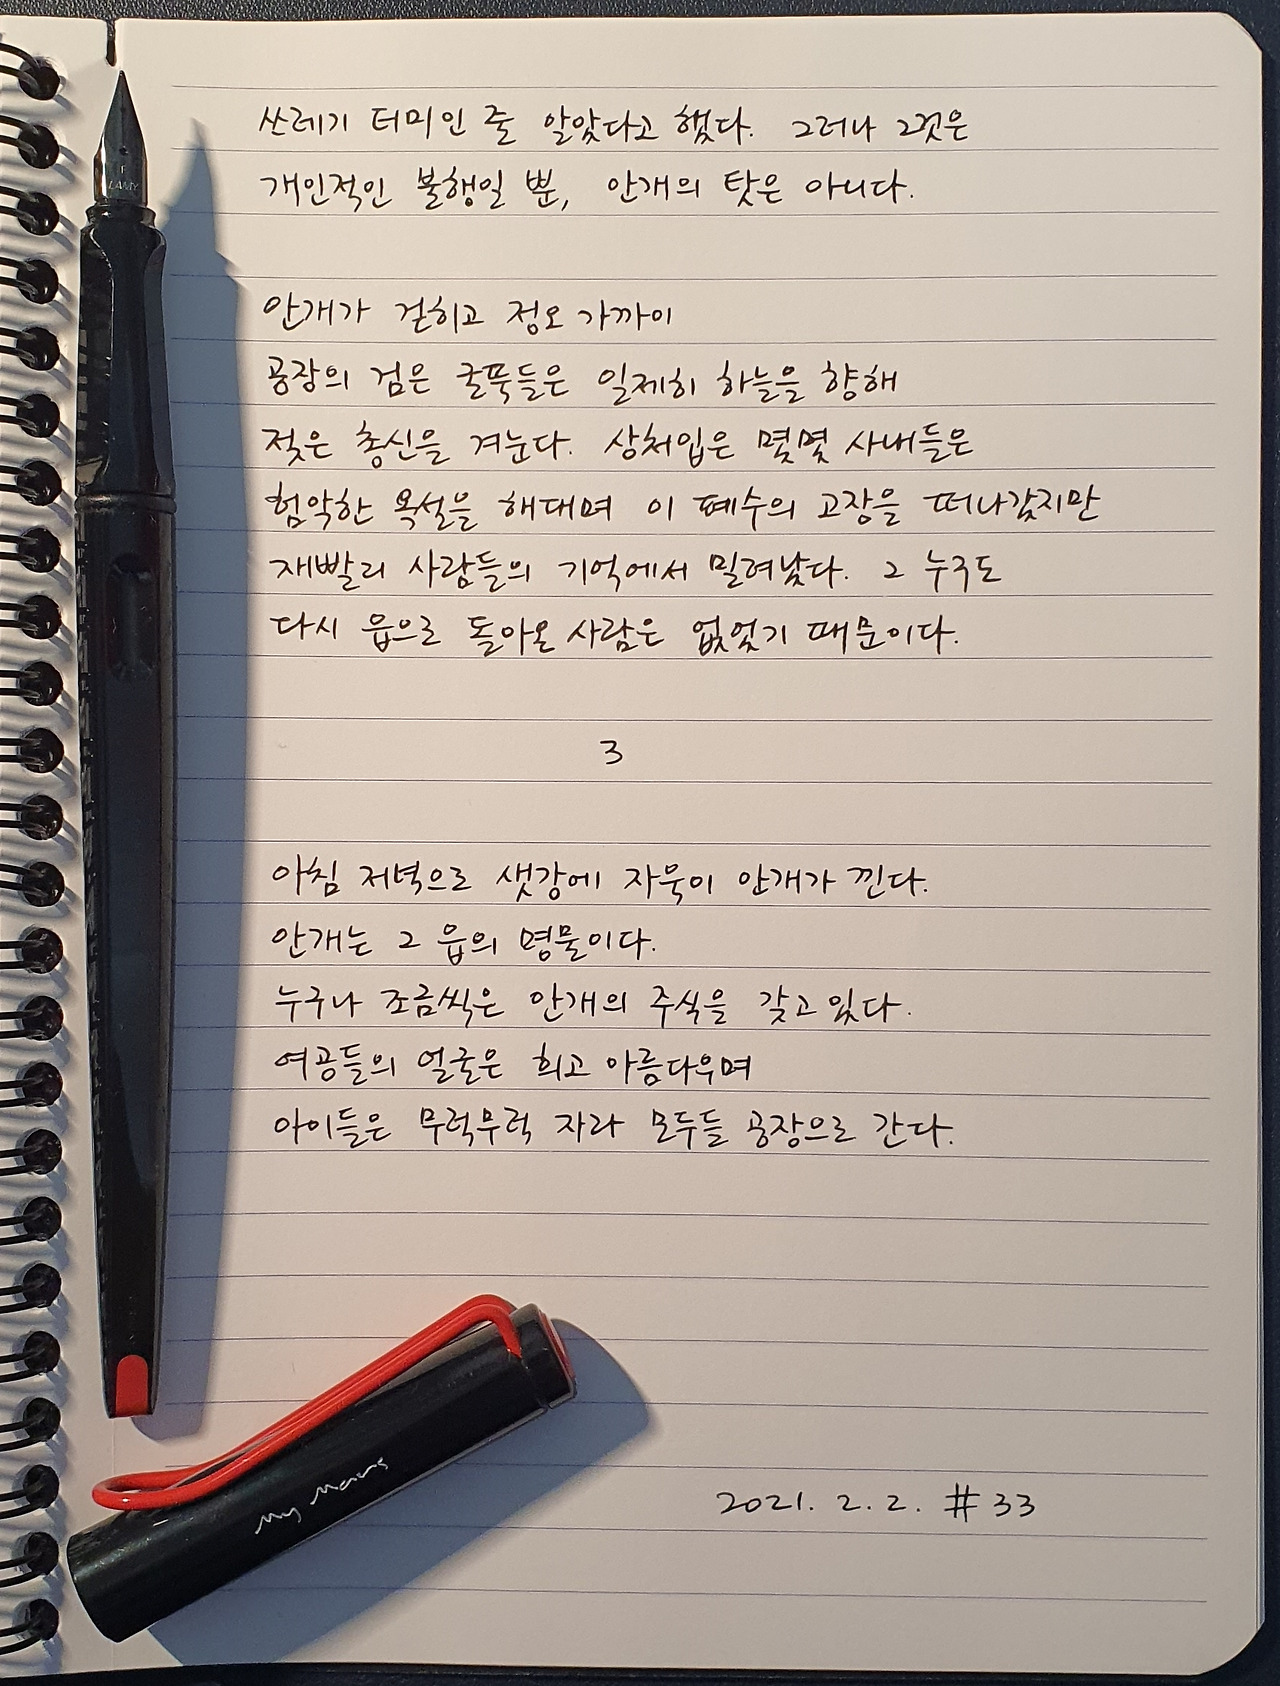 쓰레기 더미인 줄 알았다고 했다. 그러나 그것은
개인적인 불행일 뿐, 안개의 탓은 아니다.
안개가 걷히고 정오 가까이
공장의 검은 굴뚝들은 일제히 하늘을 향해
젖은 총신을 겨눈다. 상처입은 몇몇 사내들은
험악한 욕설을 해대며 이 폐수의 고장을 떠나갔지만
재빨리 사람들의 기억에서 밀려났다. 그 누구도
다시 읍으로 돌아온 사람은 없었기 때문이다.
3
아침 저녁으로 샛강에 자욱이 안개가 낀다.
안개는 그 읍의 명물이다.
누구나 조금씩은 안개의 주식을 갖고 있다.
여공들의 얼굴은 희고 아름다우며
아이들은 무럭무럭 자라 모두들 공장으로 간다.
2021. 2. 2. #33
F
LAMY